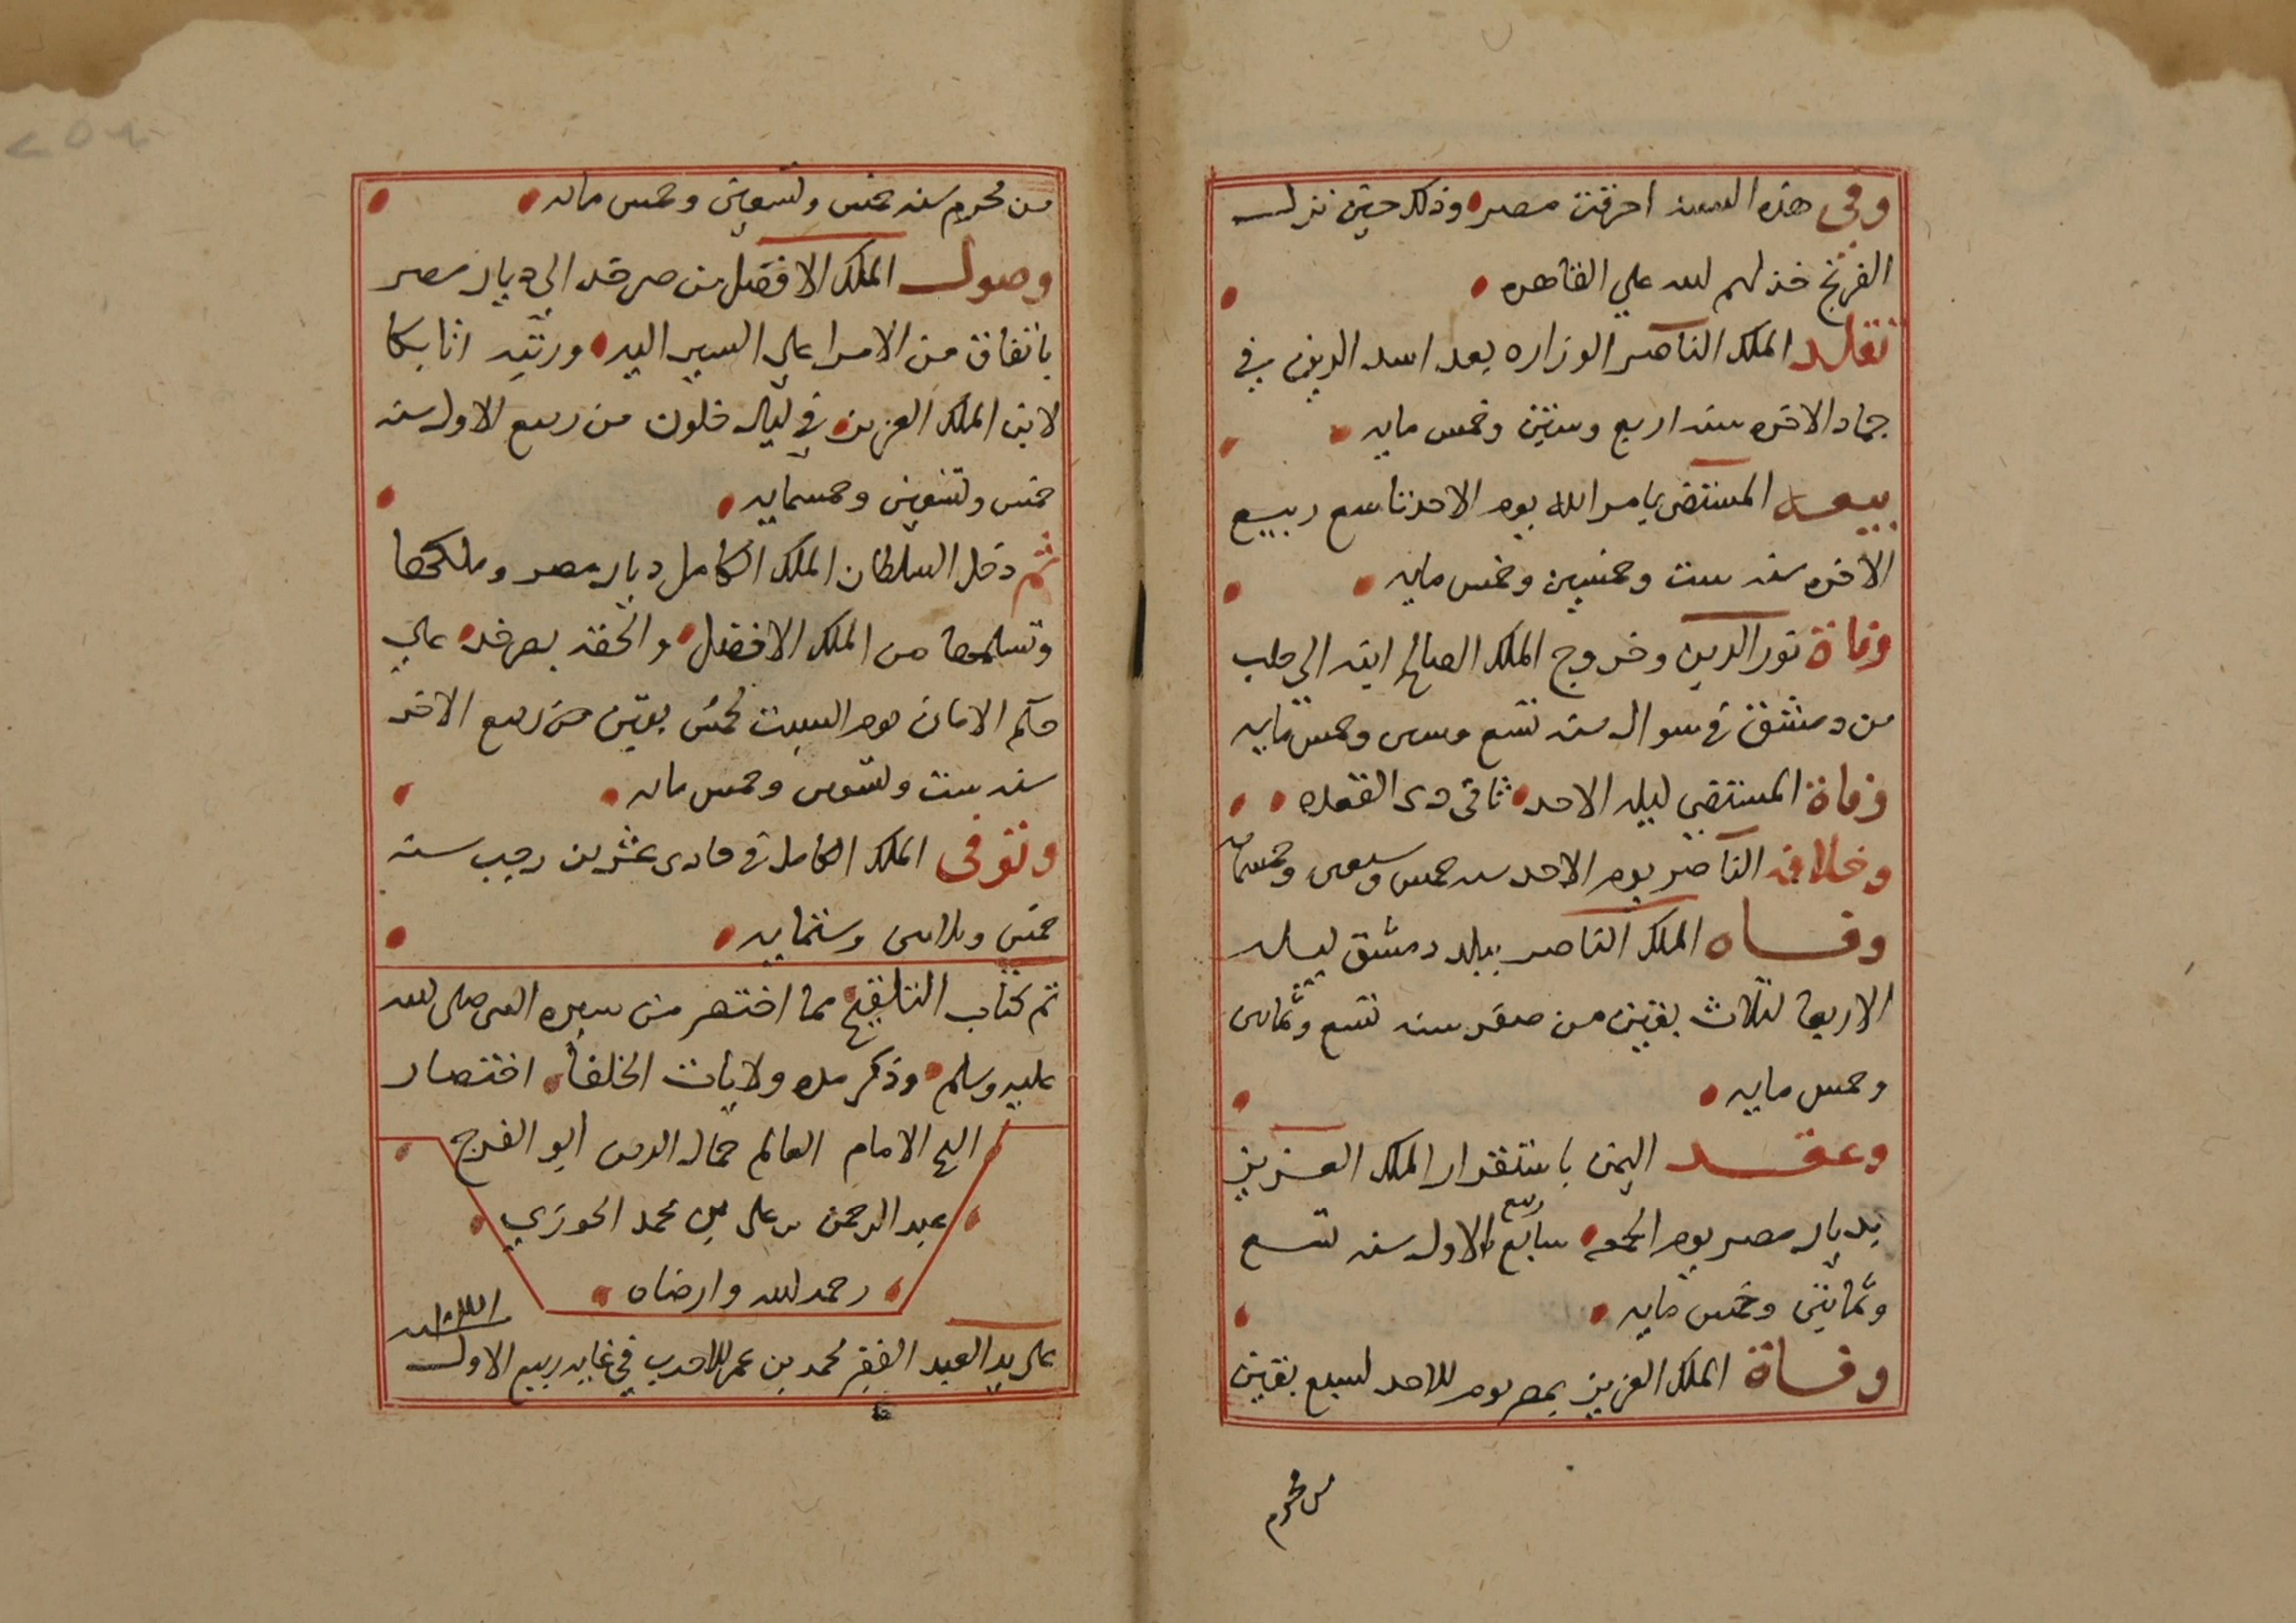 وفي هذه السنه احرقت مصر وذلك حين نزل
الفرنج خذلهم لله علي القاهره
تقلد الملك الناصر الوزاره بعد اسد الدين في
جماد الاخره سنه اربع وستين وخمس مايه
بيعه المستضى بامر الله يوم الاحد تاسع ربيع
الاخره سنه ست وخمسين وخمس مايه
وفاة نور الدين وخروج الملك الصالح ابنه الي حلب
من دمشق في سوال سنه تسع وستين وخمس مايه
وفاة المستضي ليله الاحد ثانى دى القعده
وخلافه الناصر يوم الاحد سنه خمس وسبعين وخمسمايه
وفاه الملك الناصر ببلد دمشق ليله
الاربعا لثلاث بقين من صفر سنه تسع وثمانين
وخمس مايه
وعقد اليمن باستقرار الملك العزيز
بديار مصر يوم الجمعه سابع ربيع الاول سنه تسع
وثمانين وخمس مايه
وفاة الملك العزيز بمصر يوم الاحد لسبع بقين
من محرم
من محرم سنه خمس وتسعين وخمس مايه
وصول الملك الافضل من صرخد الي ديار مصر
باتفاق من الامرا على السير اليه ورتبه اتابكا
لابن الملك العزيز في ليال خلون من ربيع الاول سنه
خمس وتسعين وخمسمايه
ثم دخل السلطان الملك الكامل ديار مصر وملكها
وتسلمها من الملك الافضل والحقه بصرخد علي
حكم الامان يوم السبت لخمس بقين من ربيع الاخر
سنه ست وتسعين وخمس مايه
وتوفى الملك الكامل في حادى عشرين رجب سنه
خمس وثلاثين وستمايه
تم كتاب التلقيح مما اختصر من سيره النبى صلى لله
عليه وسلم وذكر مده ولايات الخلفا اختصار
الشيخ الامام العالم جمال الدين ابو الفرج
عبد الرحمن بن على بن محمد الجوزي
رحمه لله وارضاه
على يد العبد الفقير محمد بن عمر الاحدب في غايه ربيع الاول